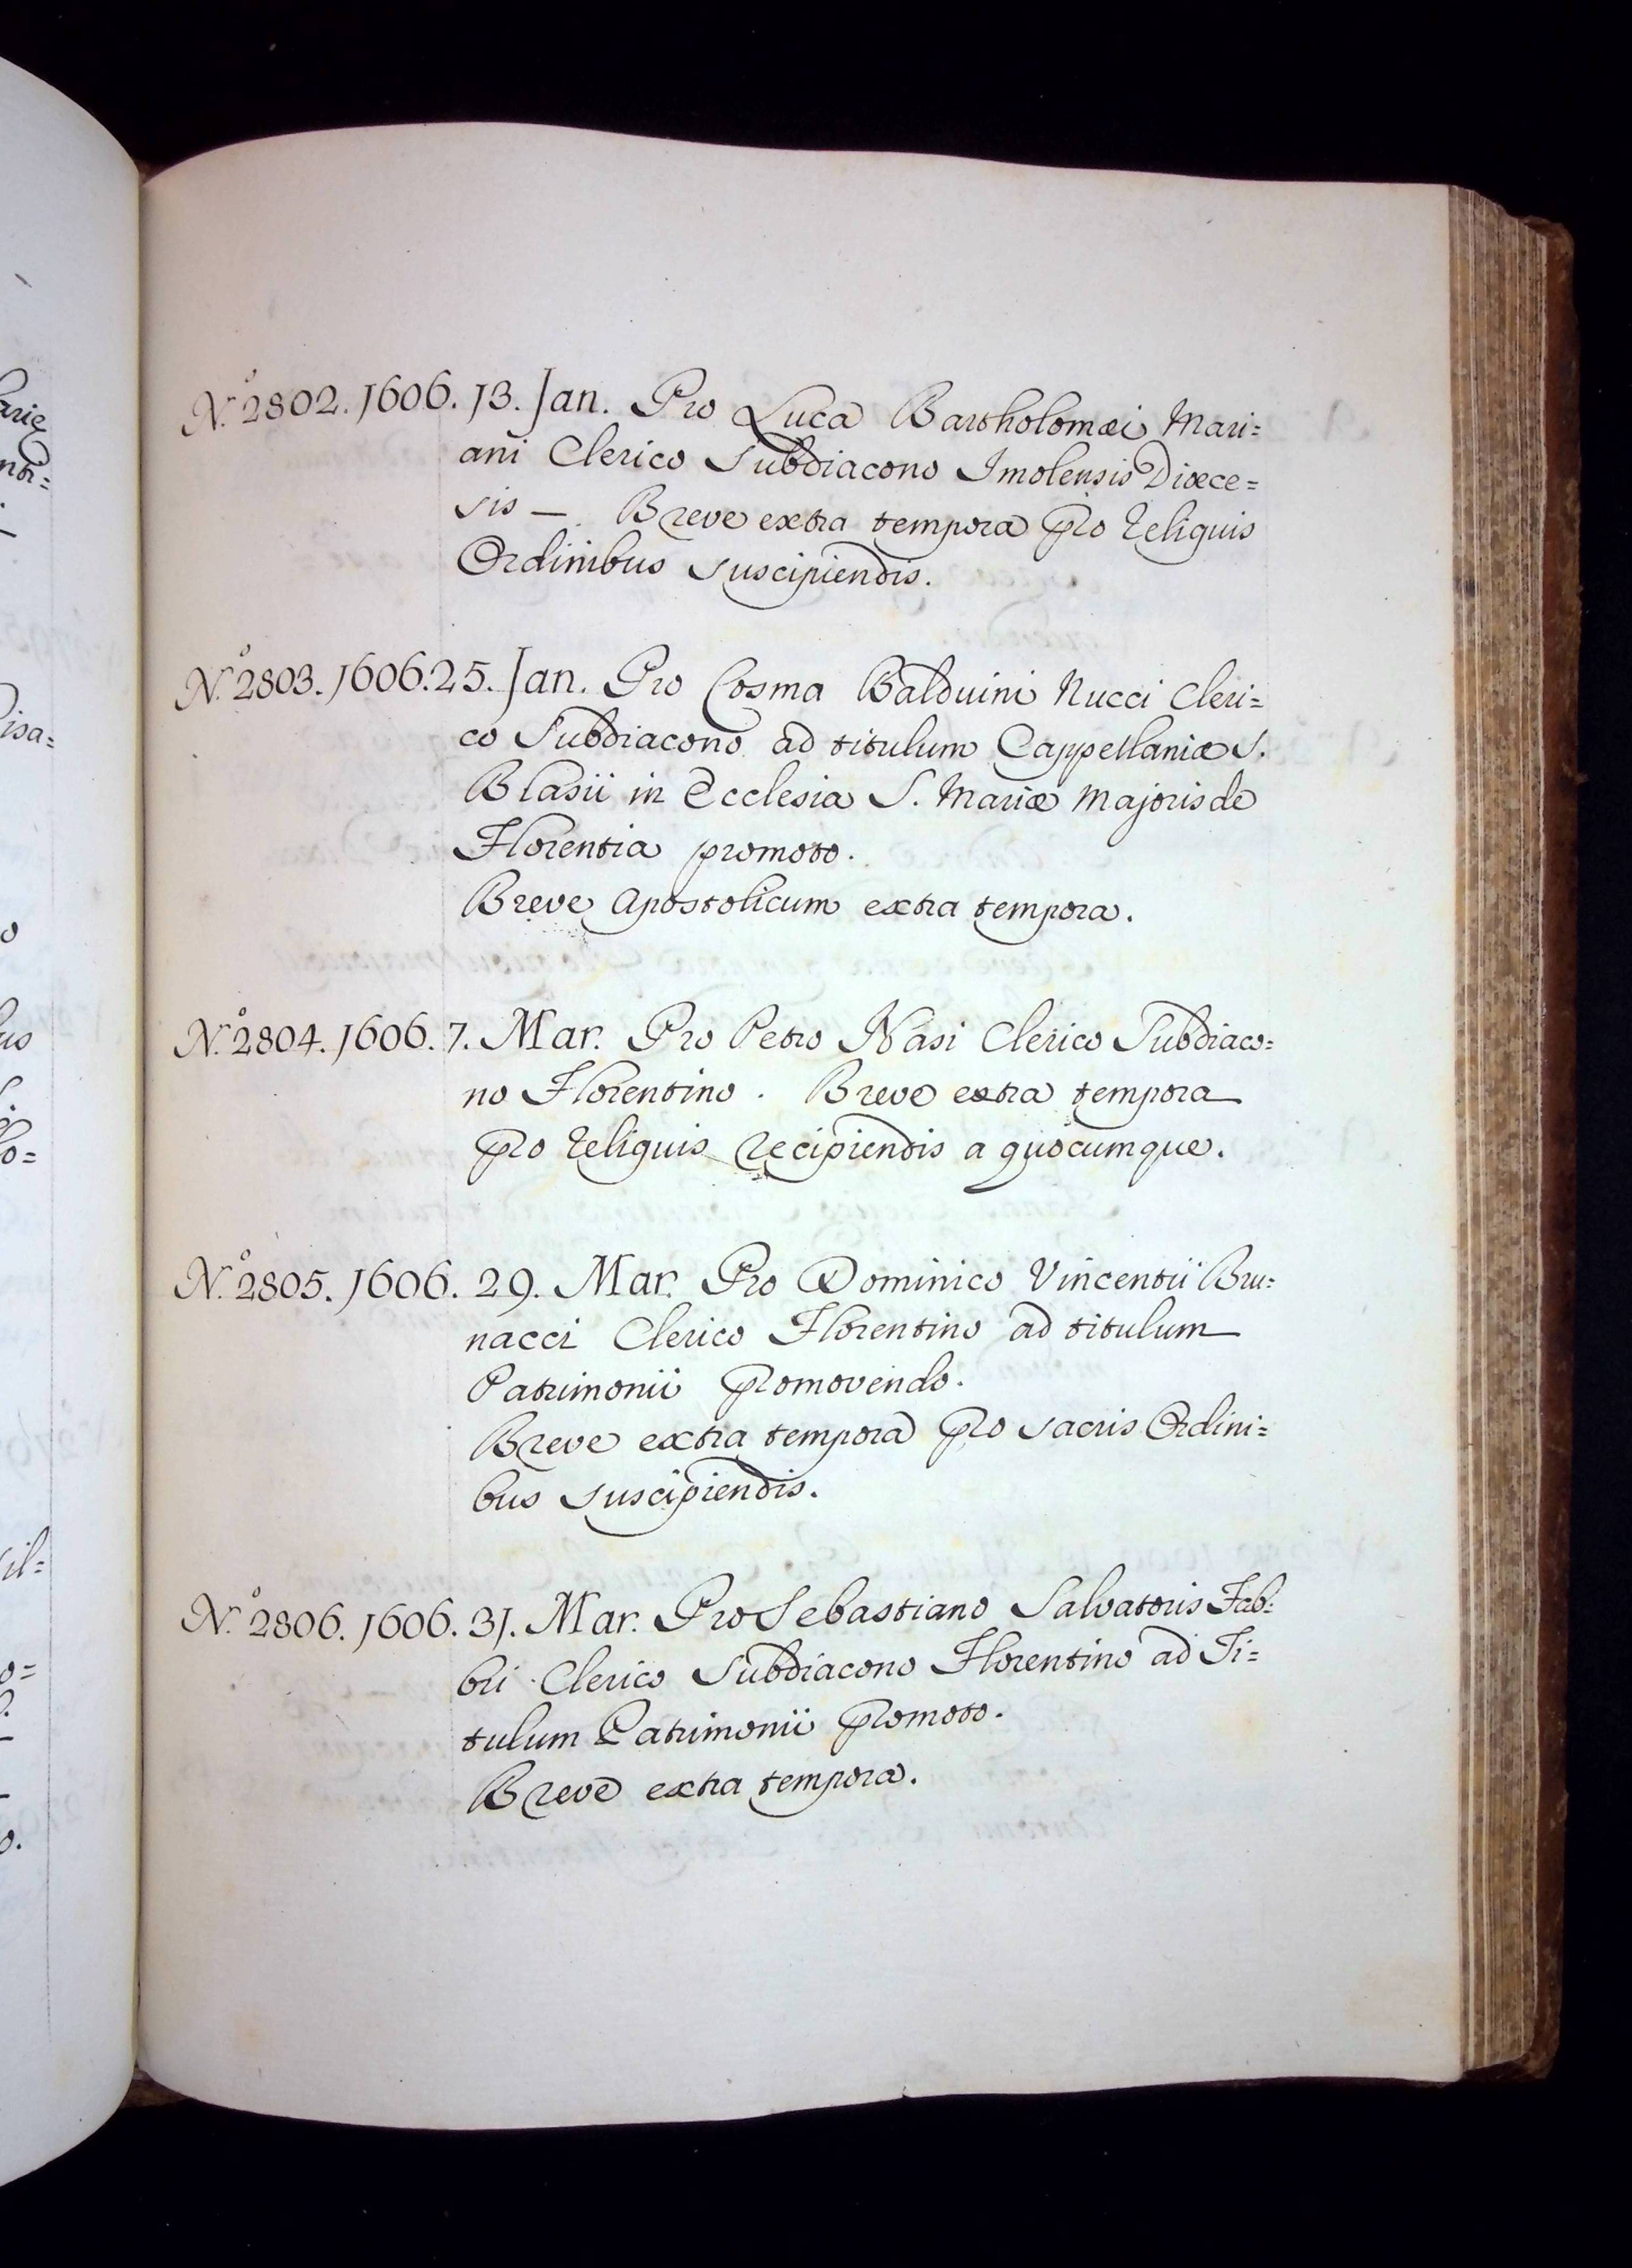 N.º 2802. 1606. 13. Jan. Pro Luca Bartholomæi Mari=
ani Clerico Subdiacono Imolensis Diœce=
sis — . Breve extra tempora pro reliquis
Ordinibus suscipiendis.
N.º 2803. 1606. 25. Jan. Pro Cosma Balduini Nucci Cleri=
co Subdiacono ad titulum Cappellaniæ S.
Blasii in Ecclesia S. Mariæ Majoris de
Florentia promoto.
Breve Apostolicum extra tempora.
N.º 2804. 1606. 7. Mar. Pro Petro Nasi Clerico Subdiaco=
no Florentino . Breve extra tempora
pro reliquis recipiendis a quocumque.
N.º 2805. 1606. 29. Mar. Pro Dominico Vincentii Bru=
nacci Clerico Florentino ad titulum
Patrimonii promovendo.
Breve extra tempora pro sacris Ordini=
bus suscipiendis.
N.º 2806. 1606. 31. Mar. Pro Sebastiano Salvatoris Fab=
bri Clerico Subdiacono Florentino ad Ti=
tulum Patrimonii promoto.
Breve extra tempora.